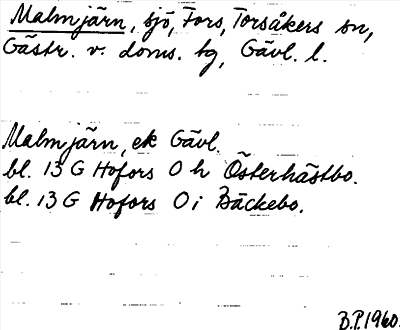 Malmjärn, sjö, Fors, Torsåkers sn,
Gästr. v. doms. tg, Gävl. l.
Malmjärn, ek Gävl.
bl. 13 G Hofors 0 h Österhästbo.
bl. 13 G Hofors 0 i Bäckebo.
B.P. 1960.